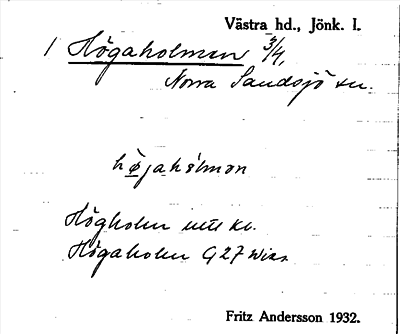 Västra hd., Jönk. l.
1 Högaholman 3/4,
Norra Sandsjö sn.
højahólmon
Högholm
Högaholm G 27
Fritz Andersson 1932.